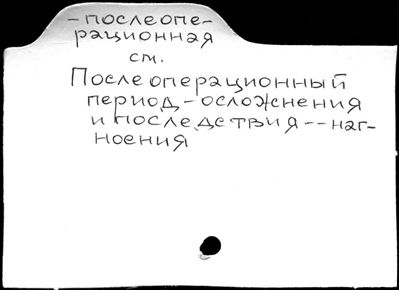 -послеопе-
рационная
см.
Послеоперационный
период-осложнения
и последствия--наг-
ноения